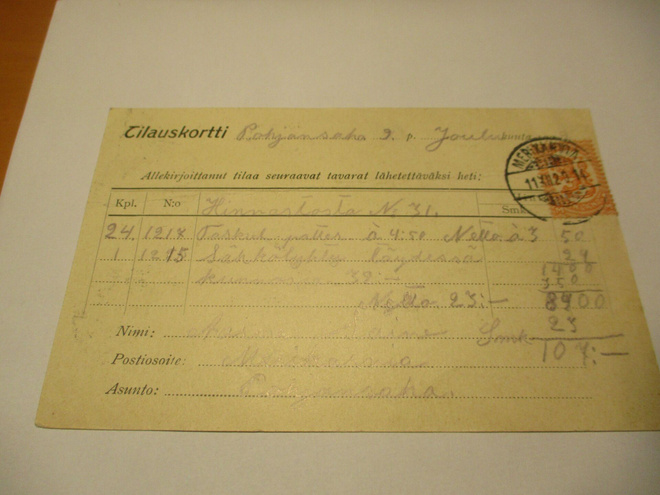 Tilauskortti Pohjansaha 9. p. Joulu kuuta
Allekirjoittanut tilaa seuraavat tavarat lähetettäväksi heti:
Kpl. N:o Hinnastosta No 31. Smk
24 1218 Taskul. patter. à 4:50 Netto à 3 50
1 1215 Sähkölyhty täydessä 24
kunnossa 32:- 1400
350
Netto 23:- 8400
23
Nimi: Smk 107:-
Postiosoite:
Asunto: Pohjansaha.